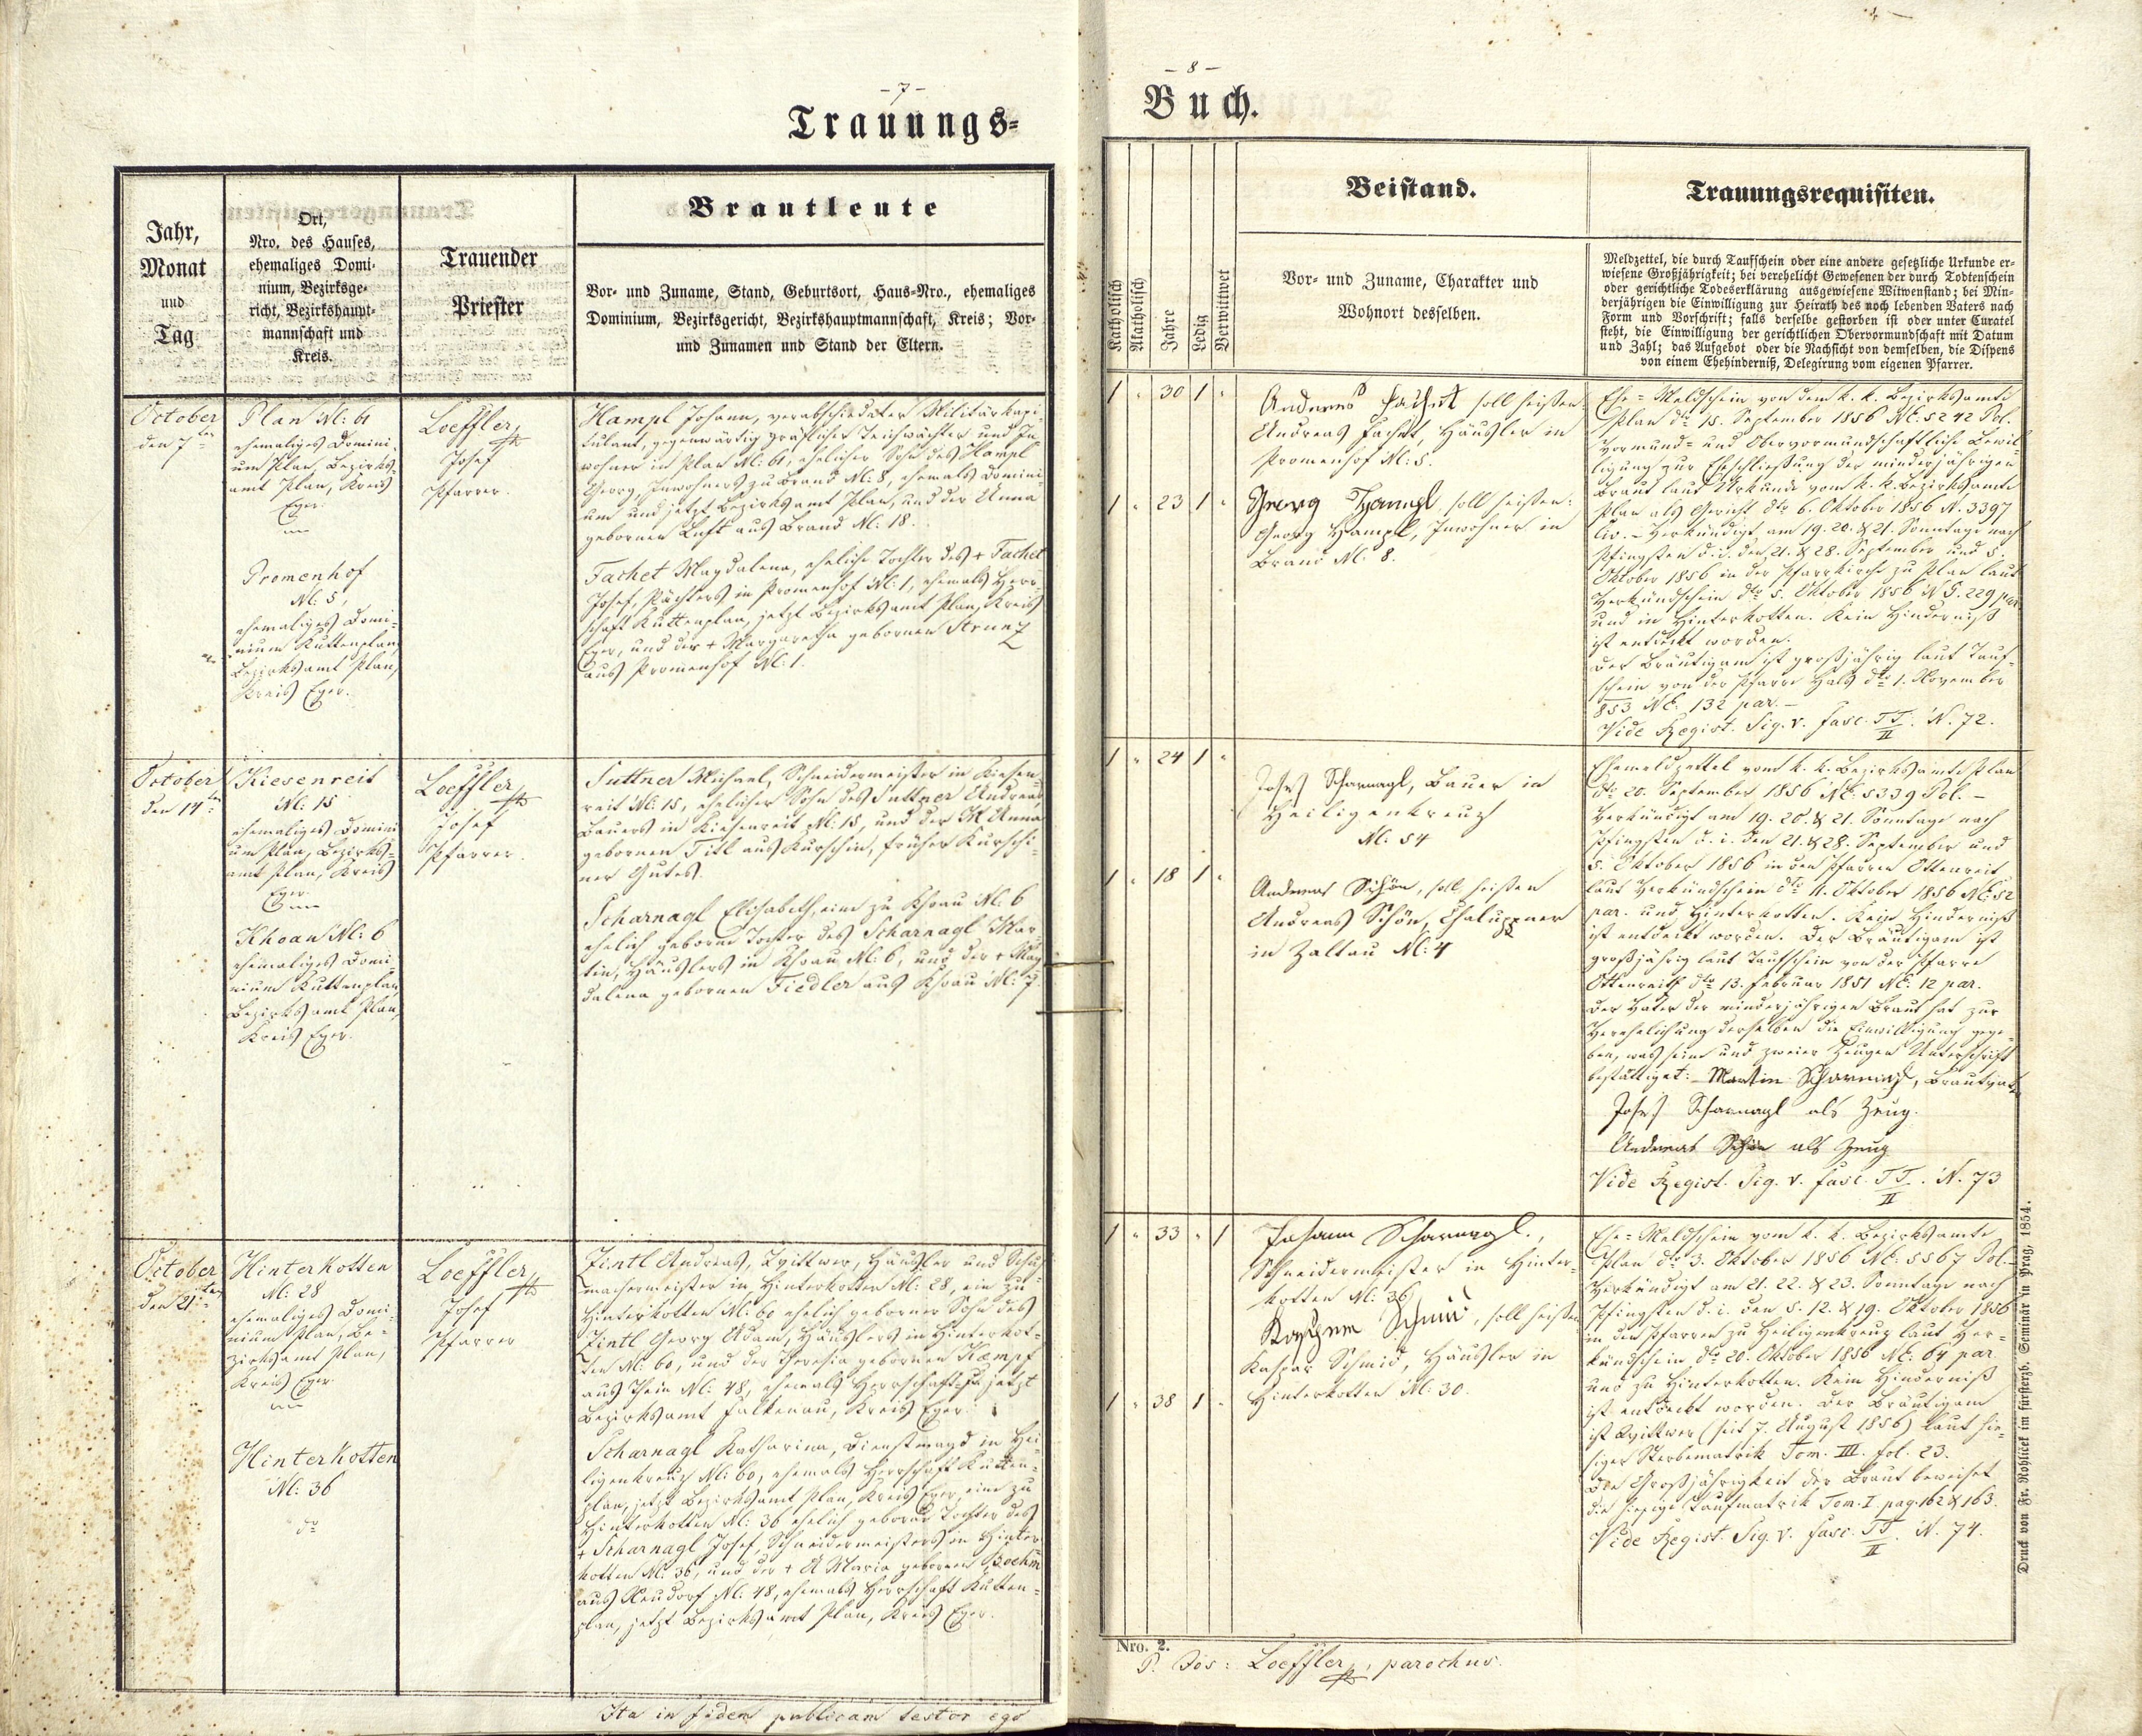 - 7 -
Trauungs=
Jahr,
Monat
und
Tag
Ort,
Nro. des Hauses,
ehemaliges Domi-
nium, Bezirksge-
richt, Bezirkshaupt-
mannschaft und
Kreis.
Trauender
Priester
Brautleute
Vor- und Zuname, Stand, Geburtsort, Haus-Nro., ehemaliges
Dominium, Bezirksgericht, Bezirkshauptmannschaft, Kreis; Vor-
und Zunamen und Stand der Eltern.
October
den 7ten
Plan N: 61
ehemaliges Domini-
um Plan, Bezirks-
amt Plan, Kreis
Eger.
Promenhof
N: 5,
ehemaliges Domi-
nium Kuttenplan,
Bezirksamt Plan,
Kreis Eger.
Loeffler,
Josef
Pfarrer.
Hampl Johann, verabschiedeter Militärkapi-
tulant, gegenwärtig gräflicher Teichwächter und In-
wohner in Plan N: 61, ehelicher Sohn des Hampl
Georg, Inwohners zu Brand N: 8, ehemals Domini-
um und jetzt Bezirksamt Plan, und der Anna
gebornen Luft aus Brand N: 18.
Fachet Magdalena, eheliche Tochter des + Fachet
Josef, Pächters in Promenhof N: 1, ehemals Herr-
schaft Kuttenplan, jetzt Bezirksamt Plan, Kreis
Eger, und der + Margaretha gebornen Strunz
aus Promenhof N: 1.
October
den 14ten
Kiesenreit
N: 15
ehemaliges Domini-
um Plan, Bezirks-
amt Plan, Kreis
Eger.
Khoau N: 6
ehemaliges Domi-
nium Kuttenplan,
Bezirksamt Plan,
Kreis Eger.
Loeffler,
Josef
Pfarrer.
Suttner Michael, Schneidermeister in Kiesen-
reit N: 15, ehelicher Sohn des Suttner Andreas,
Bauers in Kiesenreit N: 15, und der M Anna
gebornen Titl aus Kurschin, früher Kurschi-
ner Gutes.
Scharnagl Elisabeth, eine zu Khoau N: 6
ehelich geborne Tochter des Scharnagl Mar-
tin, Häuslers in Khoau N: 6, und der + Mag-
dalena gebornen Fiedler aus Khoau N: 7.
October
den 21ten
Hinterkotten
N: 28
ehemaliges Domi-
nium Plan, Be-
zirksamt Plan,
Kreis Eger.
Hinterkotten
N: 36
do
Loeffler,
Josef
Pfarrer
Zintl Andreas, Wittwer, Häusler und Schu-
machermeister in Hinterkotten N: 28, ein zu
Hinterkotten N: 60 ehelich geborner Sohn des
Zintl Georg Adam, Häuslers in Hinterkot-
ten N: 60, und der Theresia gebornen Kaempf
aus Thein N: 48, ehemals Herrschaft jetzt
Bezirksamt Falkenau, Kreis Eger.
Scharnagl Katharina, Dienstmagd in Hei-
ligenkreuz N: 60, ehemals Herrschaft Kutten-
plan, jetzt Bezirksamt Plan, Kreis Eger, eine zu
Hinterkotten N: 36 ehelich geborne Tochter des
+ Scharnagl Josef, Schneidermeisters in Hinter-
kotten N: 36, und der + A Maria gebornen Boehm
aus Neudorf N: 48, ehemals Herrschaft Kutten-
plan, jetzt Bezirksamt Plan, Kreis Eger.
Ita in fidem publicam testor ego
- 8 -
Buch.
Katholisch
Akatholisch
Jahre
Ledig
Verwittwet
Beistand.
Vor- und Zuname, Charakter und
Wohnort desselben.
Trauungsrequisiten.
Meldzettel, die durch Taufschein oder eine andere gesetzliche Urkunde er-
wiesene Großjährigkeit; bei verehelicht Gewesenen der durch Todtenschein
oder gerichtliche Todeserklärung ausgewiesene Witwenstand; bei Min-
derjährigen die Einwilligung zur Heirath des noch lebenden Vaters nach
Form und Vorschrift; falls derselbe gestorben ist oder unter Curatel
steht, die Einwilligung der gerichtlichen Obervormundschaft mit Datum
und Zahl; das Aufgebot oder die Nachsicht von demselben, die Dispens
von einem Ehehinderniß, Delegirung vom eigenen Pfarrer.
1 " 30 1 "
Andreas Fachet soll heißen:
Andreas Fachet, Häusler in
Promenhof N: 5.
1 " 23 1 "
Georg Hampl, soll heißen:
Georg Hampl, Inwohner in
Brand N: 8.
Ehe-Meldschein von dem k. k. Bezirksamte
Plan dto 15. September 1856 NE: 5242 Pol.
Vormund- und Obervormundschaftliche Bewil-
ligung zur Eheschließung der minderjährigen
Braut laut Urkunde vom k. k. Bezirksamte
Plan als Gericht dto 6. Oktober 1856 N. 3397
Civ. - Verkündigt am 19. 20. & 21. Sonntage nach
Pfingsten d. i. den 21. & 28. September und 5.
Oktober 1856 in der Pfarrkirche zu Plan laut
Verkündschein dto 5. Oktober 1856 N E. 229 par.
und in Hinterkotten. Kein Hinderniß
ist entdeckt worden.
Der Bräutigam ist großjährig laut Tauf-
schein von der Pfarre Hals dto 1. November
853 NE: 132 par. -
Vide Regist. Sig. V. fasc. TT/II. N. 72.
1 " 24 1 "
Josef Scharnagl, Bauer in
Heiligenkreuz
N: 54
1 " 18 1 "
Andreas Schön, soll heißen
Andreas Schön, Chaluppner
in Zaltau N: 4
Ehemeldzettel vom k. k. Bezirksamte Plan
dto 20. September 1856 NE: 5339 Pol. -
Verkündigt am 19. 20. & 21. Sonntage nach
Pfingsten d. i. den 21. & 28. September und
5. Oktober 1856 in den Pfarren Ottenreit
laut Verkündschein dto 11. Oktober 1856 NE: 52
par. und Hinterkotten. Kein Hinderniß
ist entdeckt worden. Der Bräutigam ist
großjährig laut Taufschein von der Pfarre
Ottenreith dto 13. Februar 1851 NE: 12 par.
Der Vater der minderjährigen Braut hat zur
Verehelichung derselben die Einwilligung gege-
ben, was seine und zweier Zeugen Unterschrift
bestättiget: Martin Scharnagl, Brautvater
Josef Scharnagl als Zeug.
Andreas Schön als Zeug
Vide Regist. Sig. V. fasc. TT/II. N. 73
1 " 33 " 1
Johann Scharnagl.,
Schneidermeister in Hinter-
kotten N: 36
Schmid, soll heißen
Kaspar Schmid, Häusler in
1 " 38 1 "
Hinterkotten N: 30.
Ehe-Meldschein vom k. k. Bezirksamte
Plan dto 3. Oktober 1856 NE: 5567 Pol. -
Verkündigt am 21. 22. & 23. Sonntage nach
Pfingsten d. i. den 5. 12. & 19. Oktober 1856
in den Pfarren zu Heiligenkreuz laut Ver-
kündschein dto 20. Oktober 1856 NE: 64 par.
und zu Hinterkotten. Kein Hinderniß
ist entdeckt worden. Der Bräutigam
ist Wittwer (seit 7. August 1856) laut hie-
siger Sterbematrik Tom. III. fol. 23.
Die Großjährigkeit der Braut beweiset
die hiesige Taufmatrik Tom. I. pag. 162 & 163.
Vide Regist. Sig. V. fasc. TT/II. N. 74.
Nro. 2.
P. Jos: Loeffler, parochus.
Druck von Fr. Rohlicek im fürsterzb. Seminär in Prag, 1854.